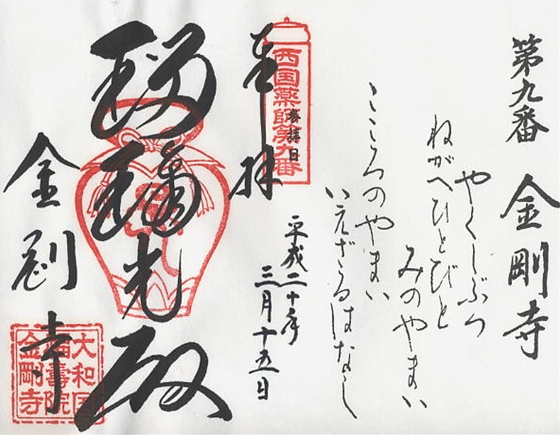 第九番 金剛寺
やくしぶつ
ねがへひとびと
みのやまい
こころのやまい
いえざるはなし
西国薬師第九番
奉拝
平成二十年
三月十五日
瑠璃光殿
金剛寺
大和国
福壽院
金剛寺